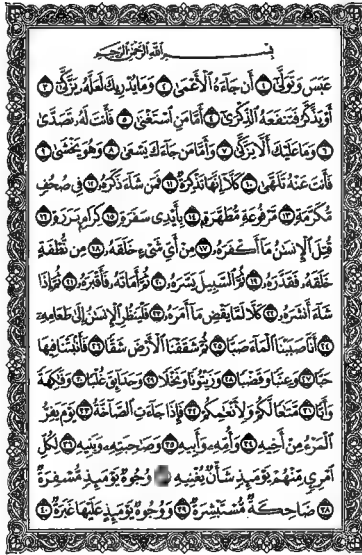 بِسْمِ ٱللَّهِ ٱلرَّحْمَٰنِ ٱلرَّحِيمِ
عَبَسَ وَتَوَلَّىٰٓ ١ أَن جَآءَهُ ٱلْأَعْمَىٰ ٢ وَمَا يُدْرِيكَ لَعَلَّهُۥ يَزَّكَّىٰٓ ٣
أَوْ يَذَّكَّرُ فَتَنفَعَهُ ٱلذِّكْرَىٰٓ ٤ أَمَّا مَنِ ٱسْتَغْنَىٰ ٥ فَأَنتَ لَهُۥ تَصَدَّىٰ
٦ وَمَا عَلَيْكَ أَلَّا يَزَّكَّىٰ ٧ وَأَمَّا مَن جَآءَكَ يَسْعَىٰ ٨ وَهُوَ يَخْشَىٰ ٩
فَأَنتَ عَنْهُ تَلَهَّىٰ ١٠ كَلَّآ إِنَّهَا تَذْكِرَةٌ ١١ فَمَن شَآءَ ذَكَرَهُۥ ١٢ فِى صُحُفٍ
مُّكَرَّمَةٍ ١٣ مَّرْفُوعَةٍ مُّطَهَّرَةٍۭ ١٤ بِأَيْدِى سَفَرَةٍ ١٥ كِرَامٍۭ بَرَرَةٍ ١٦
قُتِلَ ٱلْإِنسَٰنُ مَآ أَكْفَرَهُۥ ١٧ مِنْ أَىِّ شَىْءٍ خَلَقَهُۥ ١٨ مِن نُّطْفَةٍ
خَلَقَهُۥ فَقَدَّرَهُۥ ١٩ ثُمَّ ٱلسَّبِيلَ يَسَّرَهُۥ ٢٠ ثُمَّ أَمَاتَهُۥ فَأَقْبَرَهُۥ ٢١ ثُمَّ إِذَا
شَآءَ أَنشَرَهُۥ ٢٢ كَلَّا لَمَّا يَقْضِ مَآ أَمَرَهُۥ ٢٣ فَلْيَنظُرِ ٱلْإِنسَٰنُ إِلَىٰ طَعَامِهِۦٓ
٢٤ أَنَّا صَبَبْنَا ٱلْمَآءَ صَبًّا ٢٥ ثُمَّ شَقَقْنَا ٱلْأَرْضَ شَقًّا ٢٦ فَأَنۢبَتْنَا فِيهَا
حَبًّا ٢٧ وَعِنَبًا وَقَضْبًا ٢٨ وَزَيْتُونًا وَنَخْلًا ٢٩ وَحَدَآئِقَ غُلْبًا ٣٠ وَفَٰكِهَةً
وَأَبًّا ٣١ مَّتَٰعًا لَّكُمْ وَلِأَنْعَٰمِكُمْ ٣٢ فَإِذَا جَآءَتِ ٱلصَّآخَّةُ ٣٣ يَوْمَ يَفِرُّ
ٱلْمَرْءُ مِنْ أَخِيهِ ٣٤ وَأُمِّهِۦ وَأَبِيهِ ٣٥ وَصَٰحِبَتِهِۦ وَبَنِيهِ ٣٦ لِكُلِّ
ٱمْرِئٍ مِّنْهُمْ يَوْمَئِذٍ شَأْنٌ يُغْنِيهِ وُجُوهٌ يَوْمَئِذٍ مُّسْفِرَةٌ
٣٨ ضَاحِكَةٌ مُّسْتَبْشِرَةٌ ٣٩ وَوُجُوهٌ يَوْمَئِذٍ عَلَيْهَا غَبَرَةٌ ٤٠